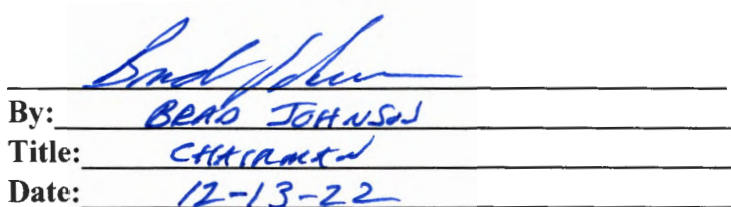 Brad Johnson
By: BRAD JOHNSON
Title: CHAIRMAN
Date: 12-13-22